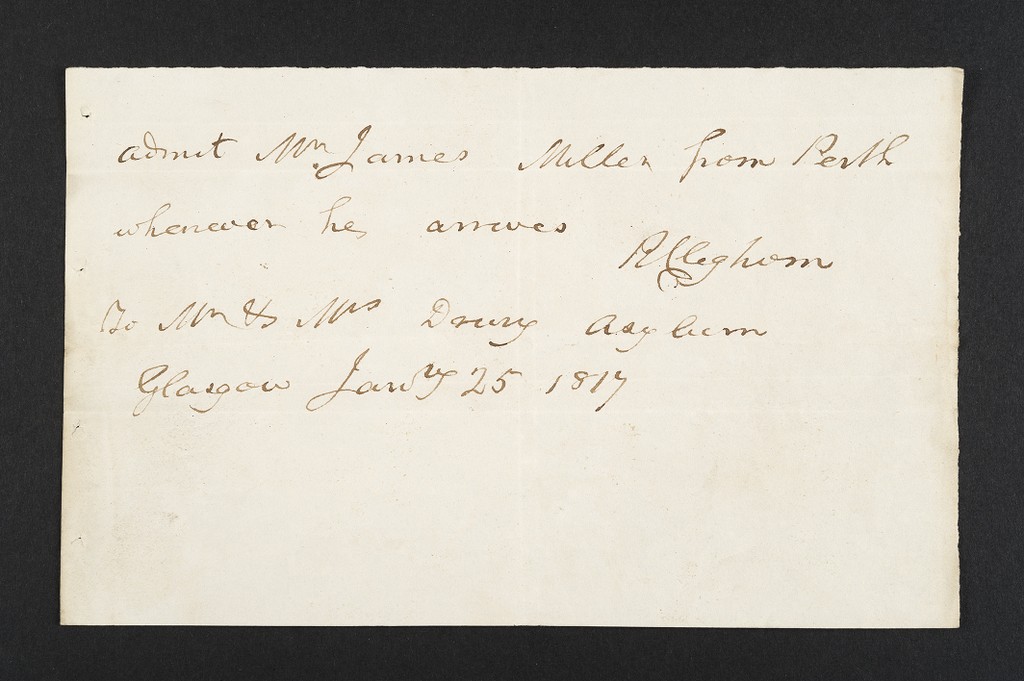 admit Mr James Miller from Perth
whenever he arrives
R Cleghorn
To Mr & Mrs Drury Asylum
Glasgow Janry 25 1817